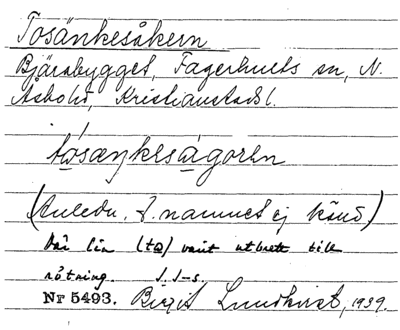 Tosänkesåkern
Bjärabygget, Fagerhults sn, N.
Åsbohd, Kristianstads l.
tósæŋkesàgoren
(Anledn. t. namnet ej känd)
Där lin (to) varit utbrett till
rötning. J. J-s,
Nr 5493. Birgit Lundkvist, 1939.